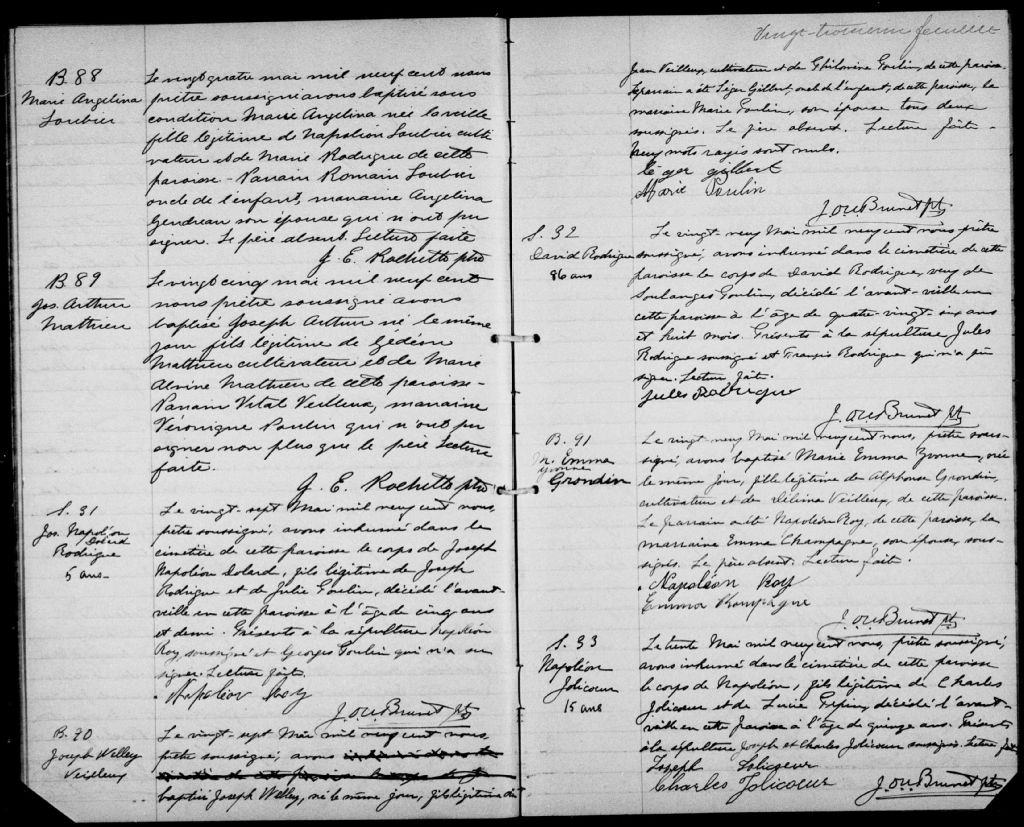 B 88
Marie Angelina
Loubier
Le vingt quatre mai mil neuf cent nous
prêtre soussigné avons baptisé sous
condition Marie Angelina née la veille
fille légitime d Napoléon Loubier culti
vateur et de Marie Rodrigue de cette
paroisse - Parrain Romain Loubier
oncle de l'enfant, marraine Angelina
Gendreau son épouse qui n'ont pu
signer. Le père absent. Lecture faite
G. E. Rochette ptre
B 89
Jos. Arthur
Mathieu
Le vingt cinq mai mil neuf cent
nous prêtre soussigné avons
baptisé Joseph Arthur né le même
jour fils légitime de Gédéon
Mathieu cultivateur et de Marie
Alvine Mathieu de cette paroisse -
Parrain Vital Veilleux, marraine
Véronique Poulin qui n'ont pu
signer non plus que le père Lecture
faite.
G. E. Rochette ptre
S. 31
Jos. Napoléon
Dolard
Rodrigue
5 ans -
Le vingt-sept Mai mil neuf cent nous,
prêtre soussigné, avons inhumé dans le
cimetière de cette paroisse le corps de Joseph
Napoléon Dolard, fils légitime de Joseph
Rodrigue et de Julie Poulin, décédé l'avant-
veille en cette paroisse à l'âge de cinq ans
et demi. Présents à la sépulture Napoléon
Roy, soussigné et Georges Poulin qui n'a su
signer. Lecture faite.
Napoléon Roy
J. O. W. Brunet ptr
B. 90
Joseph Welley
Veilleux
Le vingt-sept Mai mil neuf cent nous
prêtre soussigné, avons
baptisé Joseph Welley, né le même jour, fils légitime de
Vingt-troisième feuillet
Jean Veilleux, cultivateur et de Philomène Poulin, de cette paroisse.
Le parrain a été Léger Gilbert, oncle de l'enfant, de cette paroisse, la
marraine Marie Poulin, son épouse tous deux
soussignés. Le père absent. Lecture faite -
Neuf mots rayés sont nuls.
léger gilbert
Marie Poulin
J. O. W. Brunet ptr
S. 32
David Rodrigue
86 ans
Le vingt-neuf Mai mil neuf cent nous prêtre
soussigné, avons inhumé dans le cimetière de cette
paroisse le corps de David Rodrigue, veuf de
Soulanges Poulin, décédé l'avant-veille en
cette paroisse à l'âge de quatre-vingt-six ans
et huit mois. Présents à la sépulture Jules
Rodrigue soussigné et François Rodrigue qui n'a pu
signer. Lecture faite.
Jules Rodrigue
J. O. W. Brunet ptr
B. 91
M. Emma
Yvonne
Grondin
Le vingt-neuf Mai mil neuf cent nous, prêtre sous-
signé, avons baptisé Marie Emma Yvonne, née
le même jour, fille légitime de Alphonse Grondin,
cultivateur et de Délina Veilleux, de cette paroisse.
Le parrain a été Napoléon Roy, de cette paroisse, la
marraine Emma Champagne, son épouse, sous-
signés. Le père absent. Lecture faite.
Napoléon Roy
Emma Kompagne
J. O. W. Brunet ptr
S. 33
Napoléon
Jolicoeur
15 ans
Le trente Mai mil neuf cent nous, prêtre soussigné,
avons inhumé dans le cimetière de cette paroisse
le corps de Napoléon, fils légitime de Charles
Jolicoeur et de Lucie Pépin, décédé l'avant-
veille en cette paroisse à l'âge de quinze ans. Présents
à la sépulture Joseph et Charles Jolicoeur soussignés. Lecture faite
Joseph Jolicoeur
Charles Jolicoeur
J. O. W. Brunet ptr